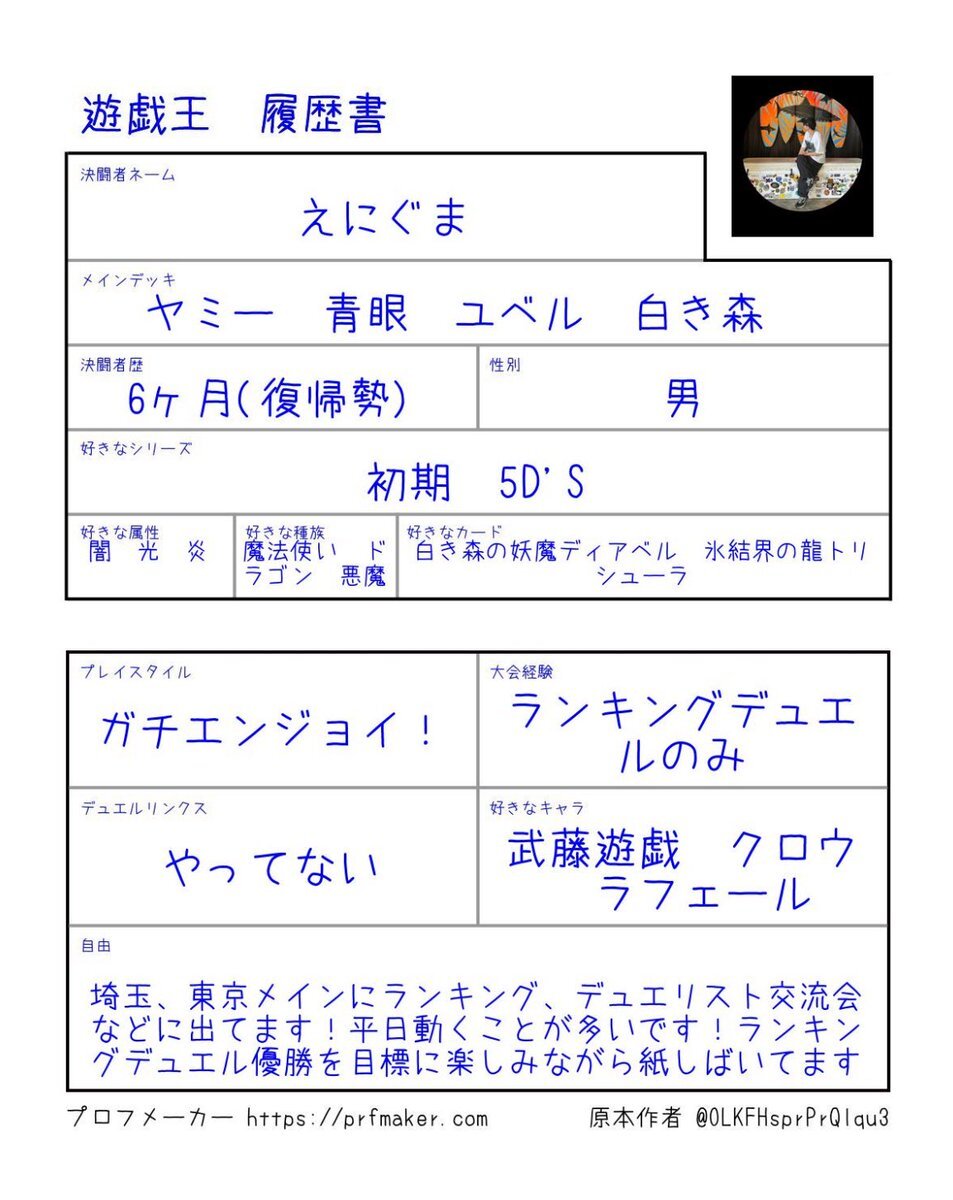 遊戯王　履歴書
決闘者ネーム
えにぐま
メインデッキ
ヤミー　青眼　ユベル　白き森
決闘者歴
6ヶ月(復帰勢)
性別
男
好きなシリーズ
初期　5D'S
好きな属性
闇　光　炎
好きな種族
魔法使い　ド
ラゴン　悪魔
好きなカード
白き森の妖魔ディアベル　氷結界の龍トリ
シューラ
プレイスタイル
ガチエンジョイ!
大会経験
ランキングデュエ
ルのみ
デュエルリンクス
やってない
好きなキャラ
武藤遊戯　クロウ
ラフェール
自由
埼玉、東京メインにランキング、デュエリスト交流会
などに出てます!平日動くことが多いです!ランキン
グデュエル優勝を目標に楽しみながら紙しばいてます
プロフメーカー https://prfmaker.com
原本作者 @OLKFHsprPrQIqu3